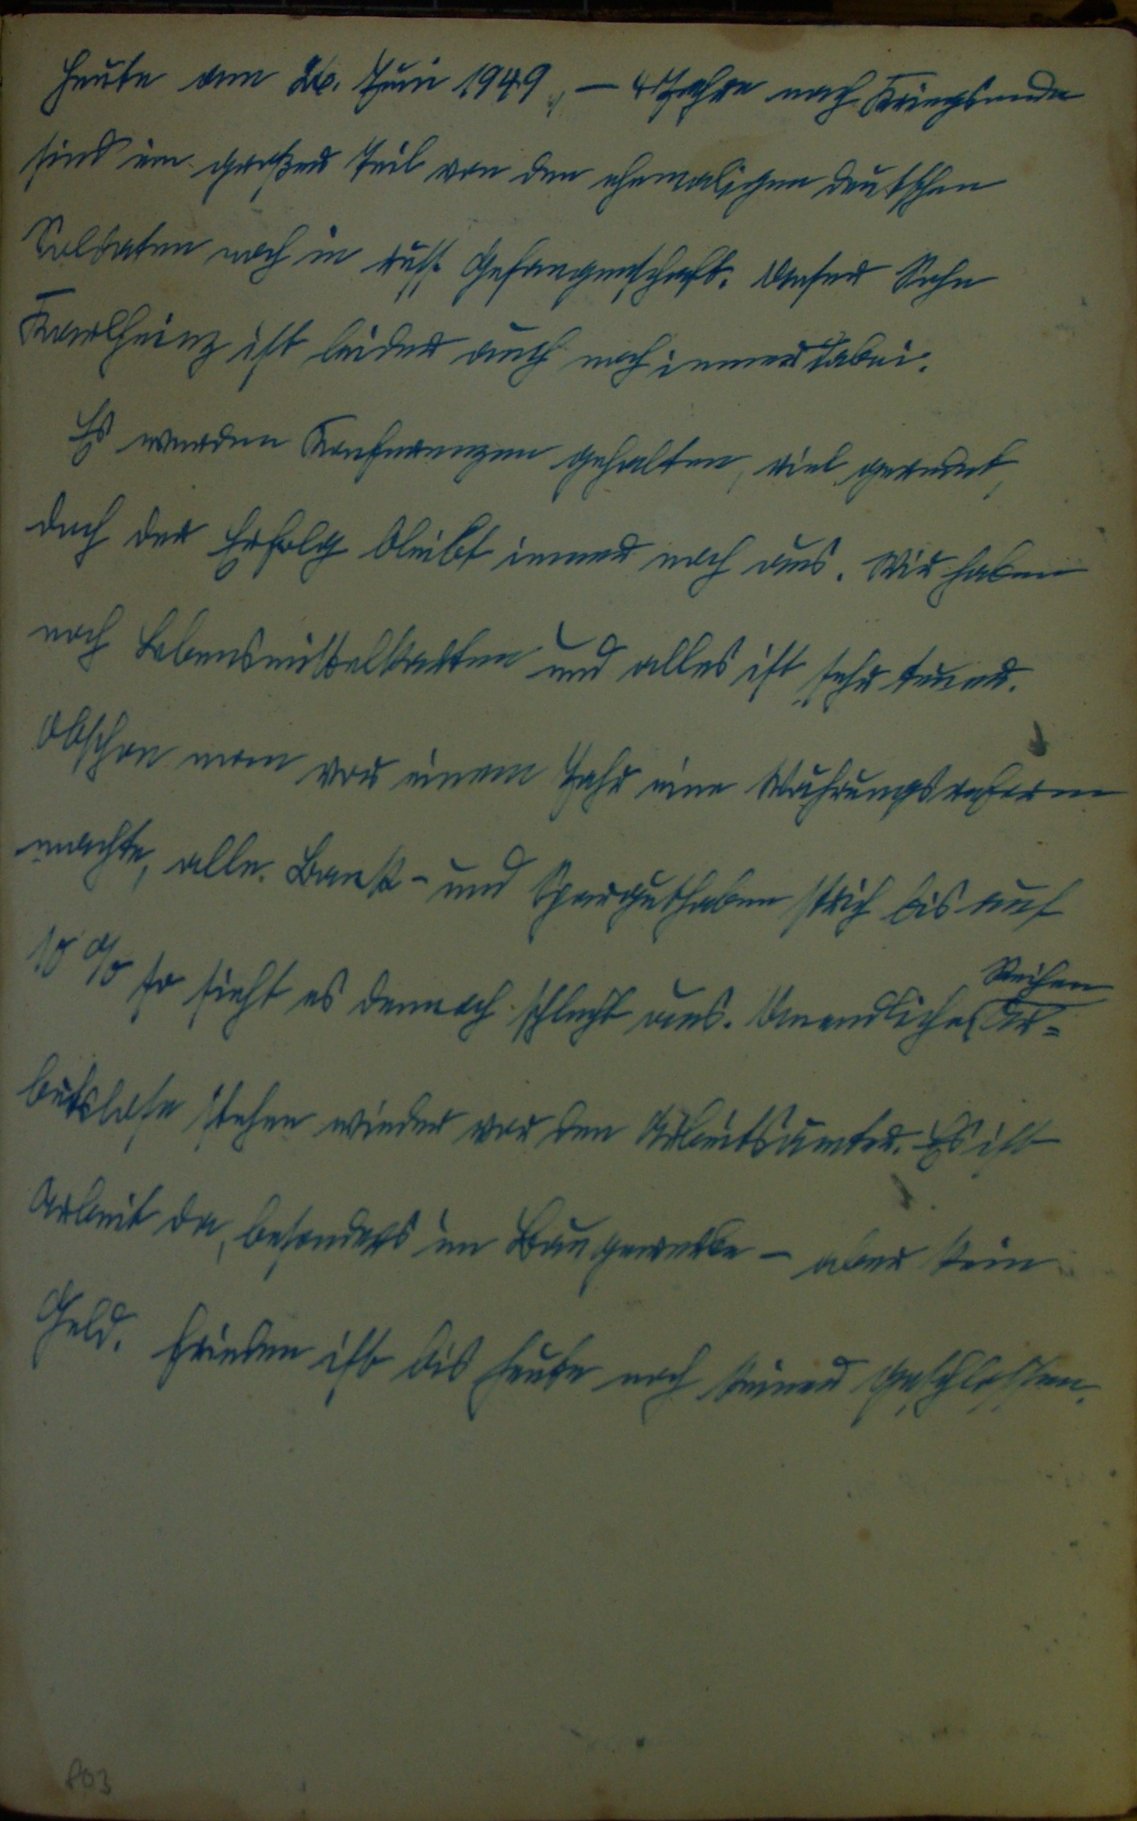 Heute am 26. Juni 1949, – 4 Jahre nach Kriegsende
sind ein großer Teil von den ehemaligen deutschen
Soldaten noch in russ. Gefangenschaft. Unser Sohn
Karlheinz ist leider auch noch immer dabei.
Es werden Konferenzen gehalten, viel geredet,
doch der Erfolg bleibt immer noch aus. Wir haben
noch Lebensmittelkarten und alles ist sehr teuer.
Obschon man vor einem Jahr eine Währungsreform
machte, alle Bank- und Sparguthaben strich bis auf
10 % so sieht es dennoch schlecht aus. Unendliche Reihen Ar=
beitslose stehen wieder vor den Arbeitsämter. Es ist
Arbeit da, besonders im Baugewerbe – aber kein
Geld. Frieden ist bis heute noch keiner geschlossen.
803